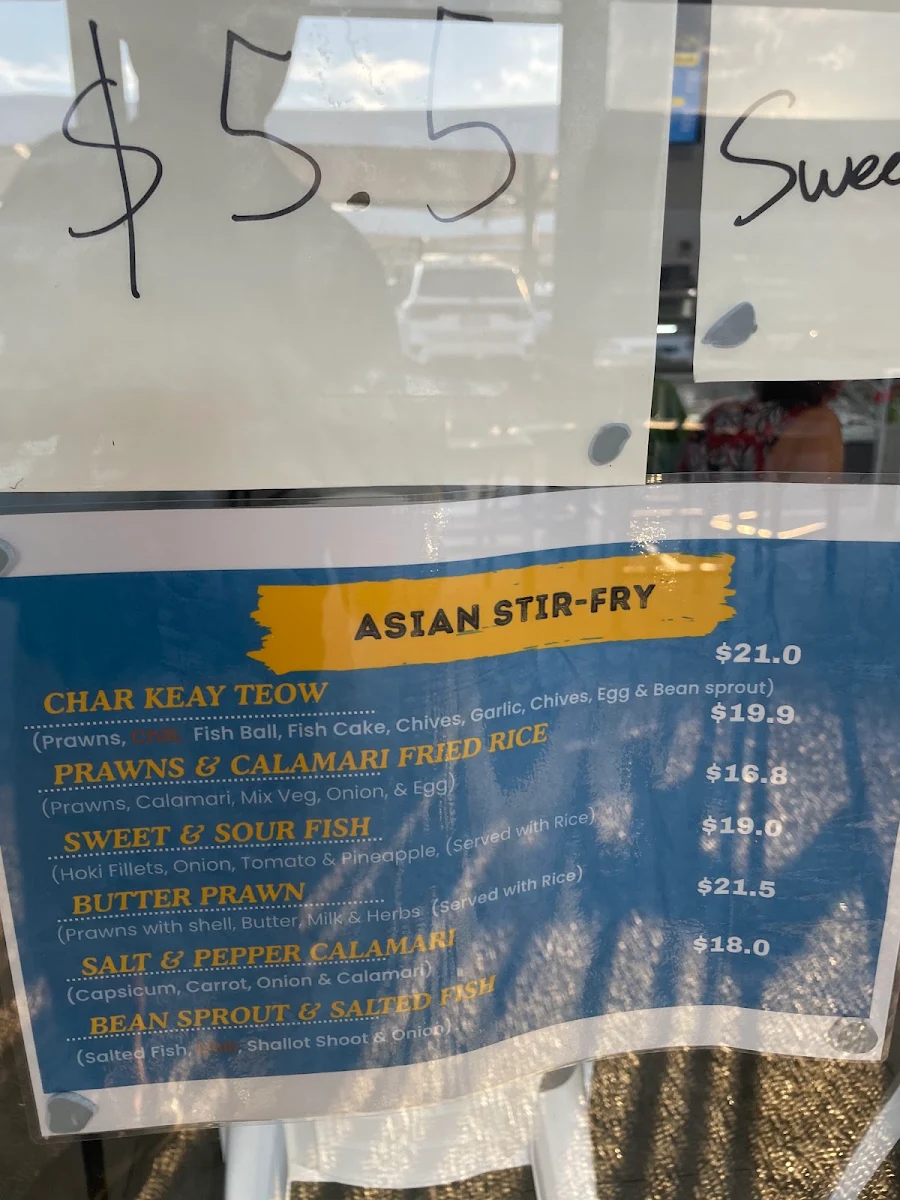 $5.5
Swee
ASIAN STIR-FRY
CHAR KEAY TEOW $21.0
(Prawns, Chili, Fish Ball, Fish Cake, Chives, Garlic, Chives, Egg & Bean sprout)
PRAWNS & CALAMARI FRIED RICE $19.9
(Prawns, Calamari, Mix Veg, Onion, & Egg)
SWEET & SOUR FISH $16.8
(Hoki Fillets, Onion, Tomato & Pineapple, (Served with Rice)
BUTTER PRAWN $19.0
(Prawns with shell, Butter, Milk & Herbs (Served with Rice)
SALT & PEPPER CALAMARI $21.5
(Capsicum, Carrot, Onion & Calamari)
BEAN SPROUT & SALTED FISH $18.0
(Salted Fish, , Shallot Shoot & Onion)